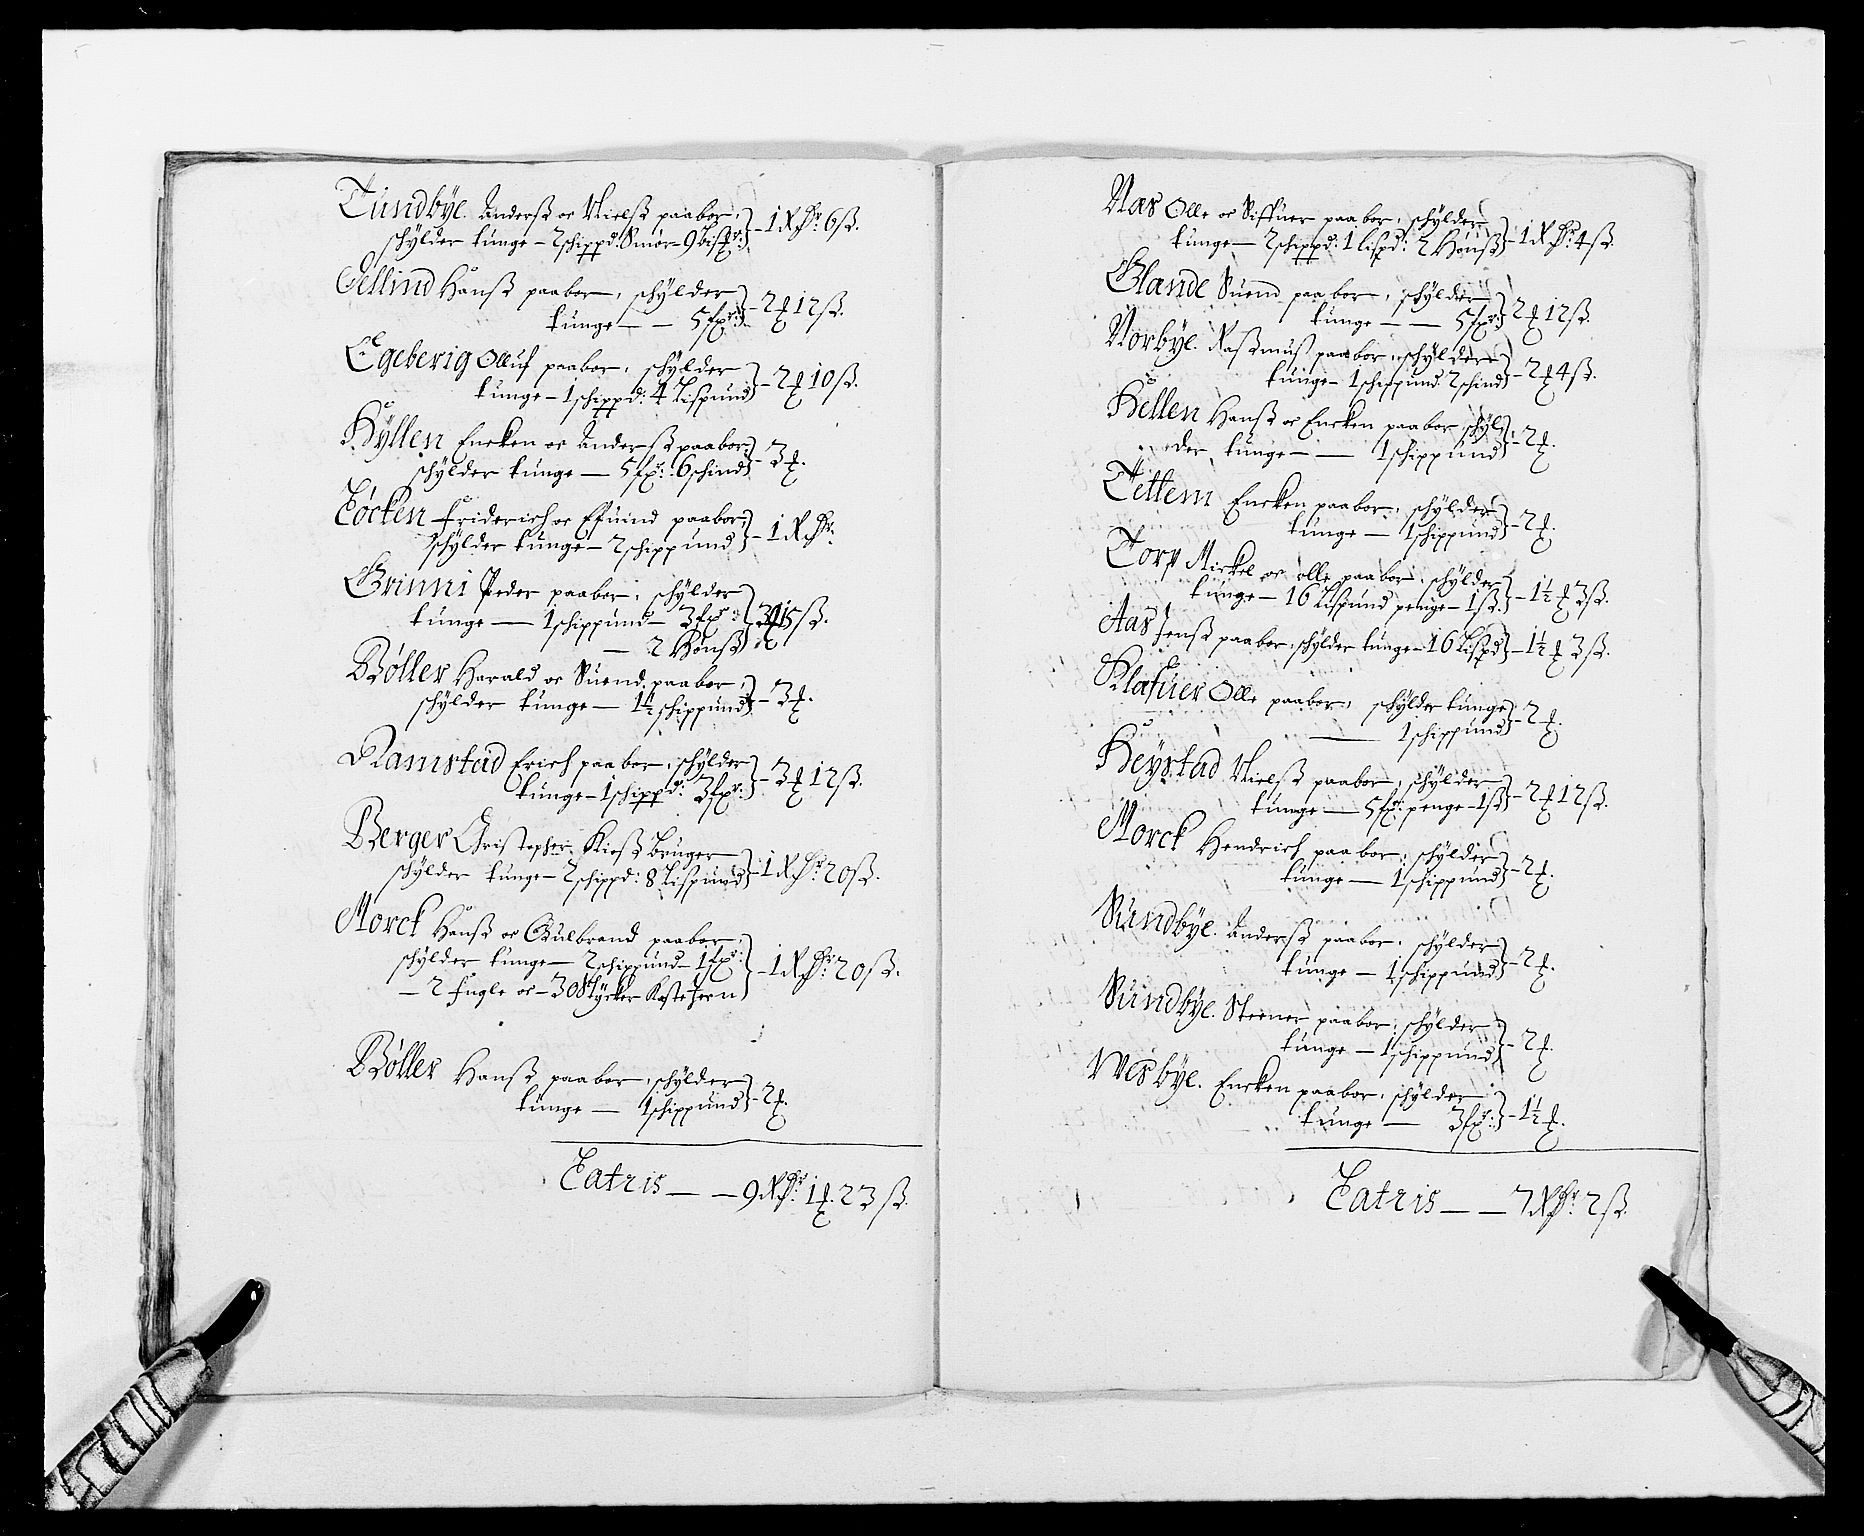 Tundbÿe. Anderß oc Nielß paabor,
schÿlder tunge – 2 schippd: Smör – 9 bißmr: – 1 Rdr: 6 ß.
Gellind Hanß paabor, schÿlder
tunge – – 5 fxr: – 2 # 12 ß.
Egeberig Oluf paabor, schÿlder
tunge – 1 schippd: 4 Lispund – 2 # 10 ß.
Hÿllen Encken oc Anderß paabor,
schÿlder tunge – 5 fxr: 6 schind – 3 #.
Løcken friderich oc Efuind paabor,
schÿlder tunge – 2 schippund – 1 Rdr.
Grinni Peder paabor, schÿlder
tunge – 1 schippund – 3 fxr: 15 ß.
– 2 Hönß
Bøller Harald oc Suend paabor,
schÿlder tunge – 1½ schippund – 3 #.
Ramstad Erich paabor, schÿlder
tunge – 1 schippd: 3 fxr: – 3 # 12 ß.
Berger Christopher Kioß bruger
schÿlder tunge – 2 schippd: 8 Lispund – 1 Rdr: 20 ß.
Morck Hanß oc Gulbrand paabor,
schÿlder tunge – 2 schippund – 1 fxr:
– 2 fugle oc – 30 Stÿcker Kastetern – 1 Rdr: 20 ß.
Bøller Hanß paabor, schÿlder
tunge – 1 schippund – 2 #.
Latris – – 9 Rdr: 1 #. 23 ß.
Næs Olle oc Siffuer paabor, schÿlder
tunge – 2 schippd: 1 lispd: 2 Hönß – 1 Rdr: 4 ß.
Glande Suend paabor, schÿlder
tunge – – 5 fxr: 2 # 12 ß.
Norbÿe. Raßmuß paabor, schÿlder
tunge – 1 schippund 2 schind – 2 # 4 ß.
Hellen Hanß oc Encken paabor schÿl,
der tunge – – 1 schippund – 2 #.
Tettem Encken paabor, schÿlder
tunge – 1 schippund – 2 #.
Torp Mickel oc olle paabor, schÿlder
tunge – 16 Lispund penge – 1 ß. – 1½ # 3 ß.
Aas Jenß paabor, schÿlder tunge – 16 Lispd – 1½ # 3 ß.
Klafuer Olle paabor, schÿlder tunge
– 1 schippund – 2 #.
Heÿstad Nielß paabor, schÿlder
tunge – 5 fxr: penge – 1 ß – 2 # 12 ß.
Morck Hendrich paabor, schÿlder
tunge – 1 schippund – 2 #.
Sundbÿe. Anderß paabor, schÿlder
tunge – 1 schippund – 2 #.
Sundbÿe. Steener paabor, schÿlder
tunge – 1 schippund – 2 #.
Wesbÿe. Encken paabor, schÿlder
tunge – 3 fxr: – 1½ #.
Latris – – 7 Rdr: 2 ß.